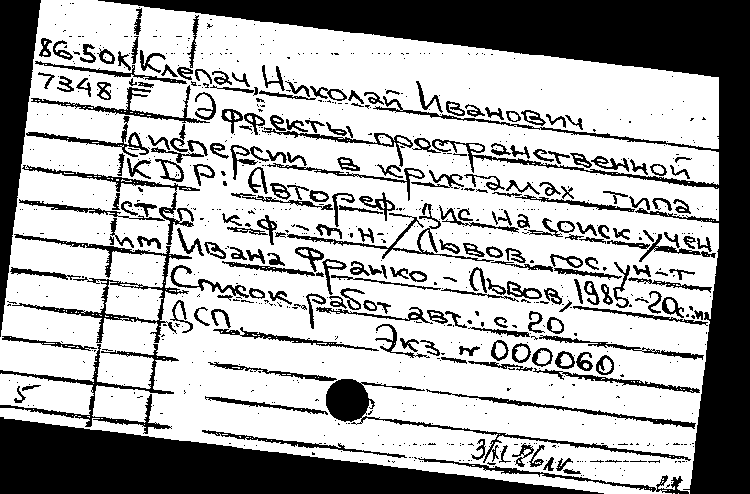 86-50К Клепач, Николай Иванович.
7348
Эффекты пространственной
дисперсии в кристаллах типа
KDP: Автореф. дис. на соиск. учен
степ. к.ф.-м.н. / Львов. гос. ун-т
им. Ивана Франко. - Львов, 1985. - 20с.: ил
Список работ авт.: с. 20.
ДСП.
Экз. № 000060.
5
3/XI-86